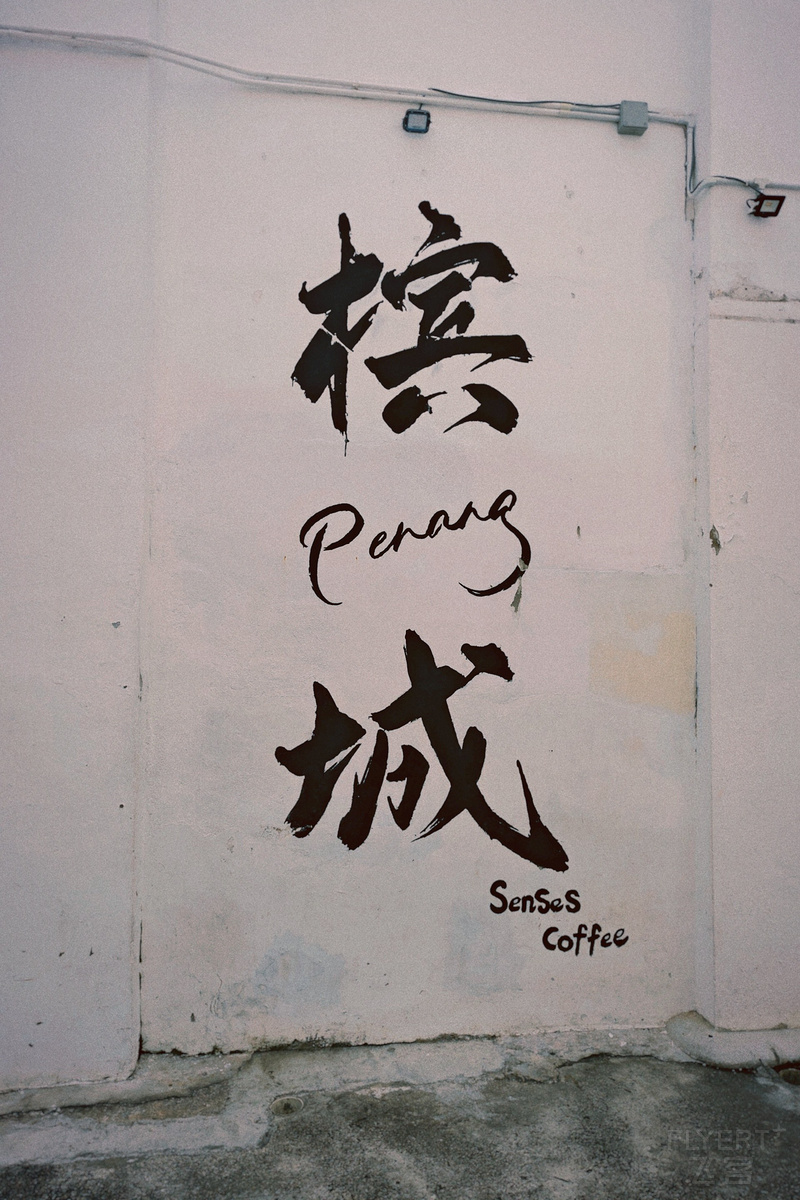 槟
Penang
城
Senses
Coffee
FLYERT